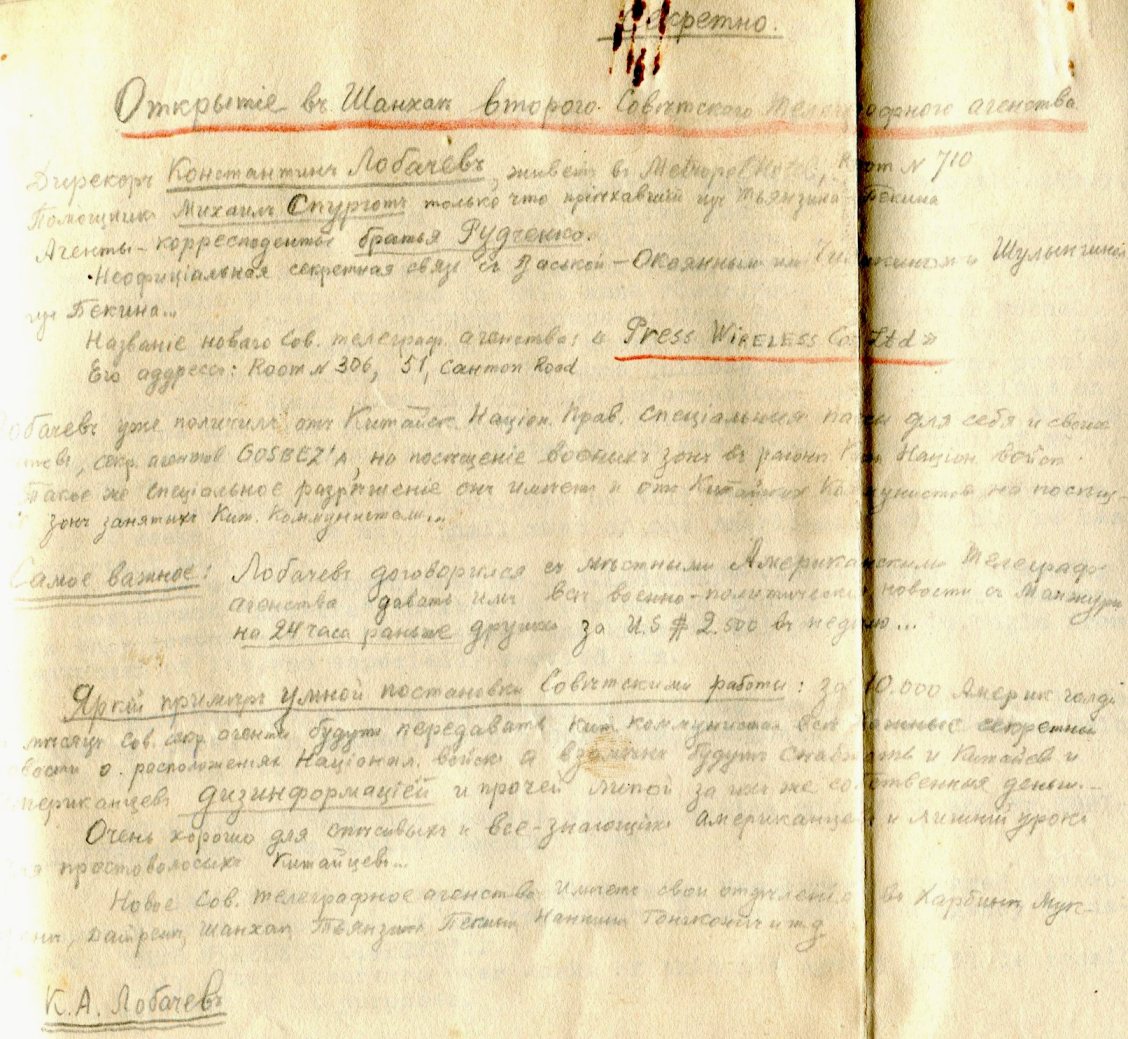 Секретно.
Открытіе въ Шанхаѣ второго Совѣтского Телеграфного агенства
Дирекоръ Константинъ Лобачевъ, живетъ въ Metropol Hotel, Room N 710
Помощникъ Михаилъ Спурготъ только что пріѣхавшій изъ Тьянзина-Пекина
Агенты-корресподенты братья Рудченко.
Неофиціальная секретная связь съ Васькой-Окаяннымъ и Шулынгиной
изъ Пекина...
Названіе новаго Сов. телеграф. агенства: « Press Wireless Co Ltd »
Его аддресъ: Room N 306, 51, Canton Road
Лобачевъ уже получилъ отъ Китайск. Націон. Прав. спеціальныя для себя и своих
секр. агентов GOSBEZ'А, на посѣщеніе военныхъ зонъ въ районѣ Націон. войск.
Такое же спеціальное разрѣшеніе онъ имѣетъ и отъ Китайских Коммунистов на посѣщ-
зонъ занятыхъ Кит. Коммунистами...
Самое важное: Лобачевъ договорился съ мѣстными Американскими Телеграф.
агенства давать имъ всѣ военно-политическія новости съ Манжури
на 24 часа раньше других за U.S $ 2.500 въ недѣлю...
Яркій примѣръ умной постановки Совѣтскими работы: за 10.000 Америк. голд.
мѣсяцъ Сов. агенты будутъ передавать Кит. коммунистам всѣ важные секретныя
новости о расположеніях Націонал. войскъ а взамѣнъ будутъ снабжать и Китайцев и
Американцевъ дизинформаціей и прочей липой за ихъ же собственныя деньги.-
Очень хорошо для спѣсивыхъ и все-знающихъ Американцевъ и лишній урокъ
для простоволосыхъ Китайцевъ...
Новое Сов. телеграфное агенство имѣетъ свои отдѣленія въ Харбинѣ, Мук-
денѣ, Дайренѣ, Шанхаѣ, Тьянзинѣ, Пекинѣ, Нанкинѣ, Гонконгѣ и т.д
К.А. Лобачевъ